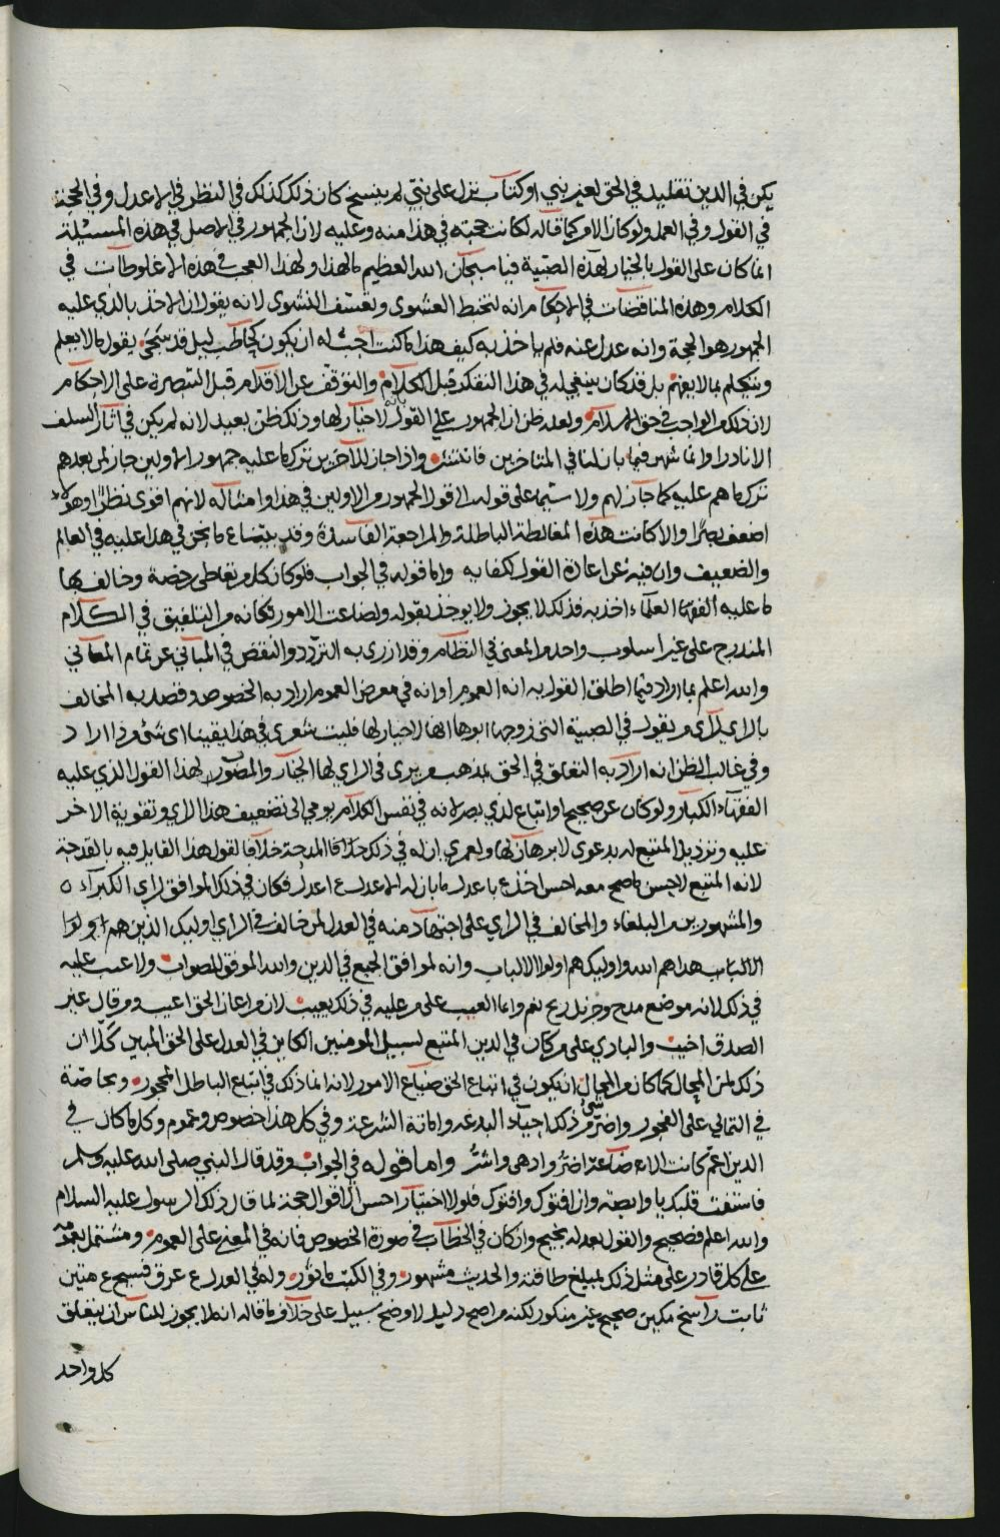 يكن في الدين تقليد في الحق لغير نبي او كتاب نزل على نبي لم ينسخ كان ذلك كذلك في النظر في الاعدل وفي الحجة
في القول وفي العمل ولو كان الامر كما قاله لكانت حجته في هذا منه وعليه لان الجمهور في الاصل في هذه المسئلة
انما كان على القول بالخيار لهذه الصبية فيا سبحان الله العظيم ما لهذا ولهذا العجب في هذه الاغلوطات في
الكلام وهذه المناقضات في الاحكام انه لتخبط العشوى وتعسف النشوى لانه يقول ان الاخذ بالذي عليه
الجمهور هو الحجة وانه عدل عنه فلم ياخذ به كيف هذا ما كنت احب له ان يكون كحاطب ليل قد سجى يقول ما لا يعلم
ويتكلم بما لا يفهم بل قد كان ينبغي له في هذا التفكر قبل الكلام والتوقف عن الاقدام قبل التبصرة على الاحكام
لان ذلك من الواجب في حق الاسلام ولعله ظن ان الجمهور على القول لا خيار لها وذلك ظن بعيد لانه لم يكن في آثار السلف
الا نادرا وانما شهر فيما بان لنا في المتاخرين فانتشر واذا جاز للآخرين ترك ما عليه جمهور الاولين جاز لمن بعدهم
ترك ما هم عليه كما جاز لهم ولا سيما على قوله الى قول الجمهور من الاولين في هذا وامثاله لانهم اقوى نظرا وهؤلاء
اضعف بصرا والا كانت هذه المغالطة الباطلة والمراجعة الفاسدة وقد ما نحن في هذا عليه في العالم
والضعيف وان فيه عن اعادة القول لكفاية واما قوله في الجواب فلو كان كل من تعاطى رخصة وخالف بها
ما عليه الفقهاء العلماء اخذ به فذلك لا يجوز ولا يوخذ بقوله ولضاعت الامور فكانه من التلفيق في الكلام
المندرج على غير اسلوب واحد من المعنى في النظام وقد ازرى به التردد والنقص في المباني عن تمام المعاني
والله اعلم بما اراد فيما اطلق القول به انه العموم او انه في معرض العموم اراد به الخصوص وقصد به المخالف
بالراي لراي من يقول في الصبية التي زوجها ابوها انها لا خيار لها فليت شعري في هذا يقينا اي شيء من ذا اراد
وفي غالب الظن انه اراد به التعلق في الحق بمذهب من يرى في الراي لها الخيار والمصوب لهذا القول الذي عليه
الفقهاء الكبار ولو كان عن صحيح واتباع لذي بصر لانه في نفس الكلام يومي الى تضعيف هذا الراي وتقوية الاخر
عليه وترذيل المتبع له بدعوى لا برهان لها ولعمري ان له في ذلك خلافا المدحة خلافا لقول هذا القايل فيه بالقدحة
لانه المتبع لاحسن ما صح معه احسن اخذ باعدل ما بان له الاعدل اعدل فكان في ذلك الموافق لراي الكبرآء
والمشهورين من البلغاء والمخالف في الراي على اجتهاد منه في العدل لمن خالف في الراي اوليك الذين هم اولوا
الالباب هداهم الله واوليك هم اولوا الالباب وانه لموافق الجميع في الدين والله الموفق للصواب ولا عيب عليه
في ذلك لانه موضع مدح نعم وانما العيب على من عليه في ذلك يعيب لان من اعان الحق اعيب ومن قال غير
الصدق اخيب والباري على من كان في الدين المتبع لسبيل المؤمنين الكاين في العدل على الحق المبين كلا ان
ذلك لمن المحال كما كان من المحال ان يكون في اتباع الحق ضياع الامور لانه انما ذلك في اتباع الباطل المهجور وبخاصة
في التمالي على الفجور واضر من ذلك احياء البدعة واماتة الشرعة وفي كل هذا خصوص وعموم وكل ما كان في
الدين اعم كانت الاضاعة اضر وادهى واشر واما قوله في الجواب وقد قال النبي صلى الله عليه وسلم
فاستفت قلبك يا وابصه وان افتوك وافتوك فلولا اختيار احسن الاقوال حجة لما قال ذلك الرسول عليه السلام
والله اعلم فصحيح والقول بعدله نجيح وان كان في الخطاب في صورة الخصوص فانه في المعنى على العموم ومشتمل بعمومه
على كل قادر على مثل ذلك لمبلغ طاقته والحديث مشهور وفي الكتب ماثور وله في العدل عرق متين
ثابت راسخ مكين صحيح غير منكور لكنه من اصح دليل لاوضح سبيل على خلاف ما قاله انه لا يجوز للناس ان يتعلق
كل واحد